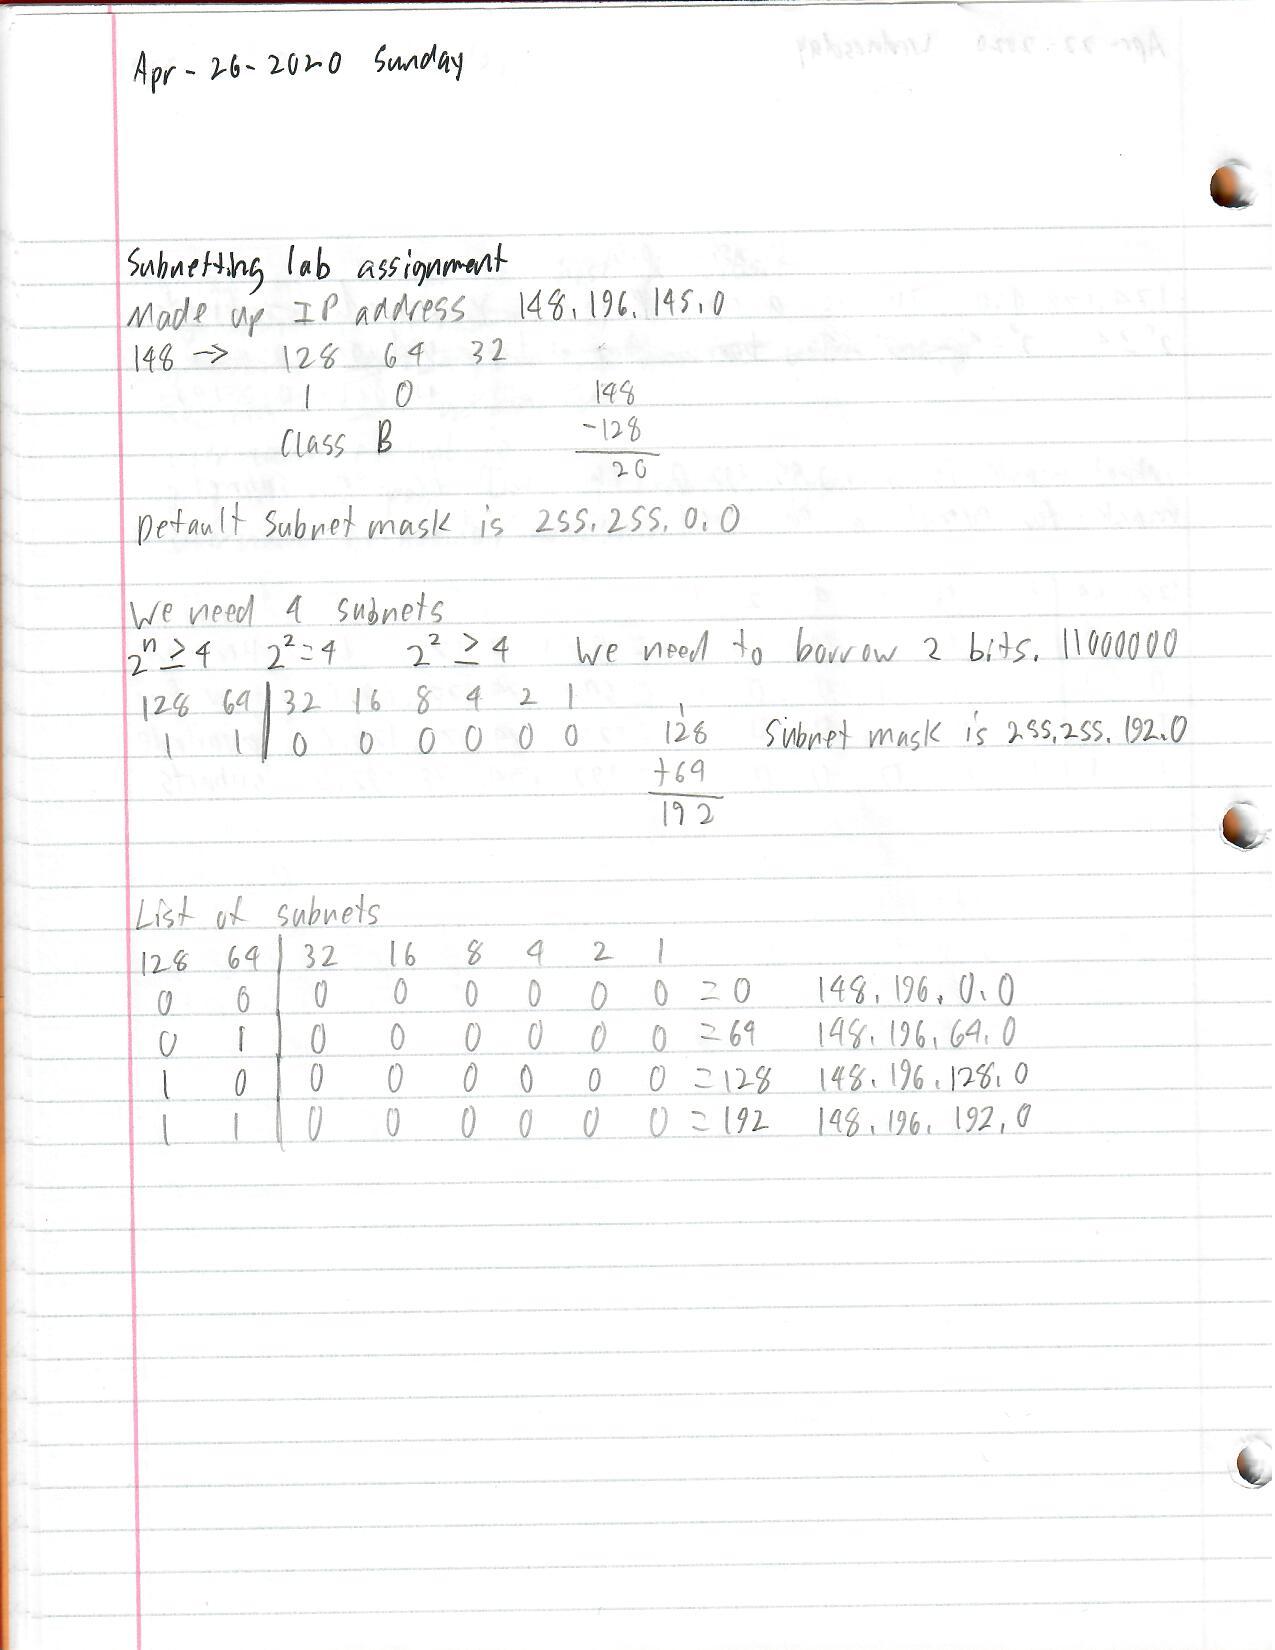 Apr-26-2020 Sunday
Subnetting lab assignment
Made up IP address 148.196.145.0
148 → 128 64 32
1 0 148
Class B -128
20
Default subnet mask is 255.255.0.0
We need 4 subnets
2ⁿ ≥ 4 2² = 4 2² ≥ 4 We need to borrow 2 bits. 11000000
128 64 | 32 16 8 4 2 1 1
1 1 | 0 0 0 0 0 0 128 Subnet mask is 255.255.192.0
+64
192
List of subnets
128 64 | 32 16 8 4 2 1
0 0 | 0 0 0 0 0 0 = 0 148.196.0.0
0 1 | 0 0 0 0 0 0 = 64 148.196.64.0
1 0 | 0 0 0 0 0 0 = 128 148.196.128.0
1 1 | 0 0 0 0 0 0 = 192 148.196.192.0